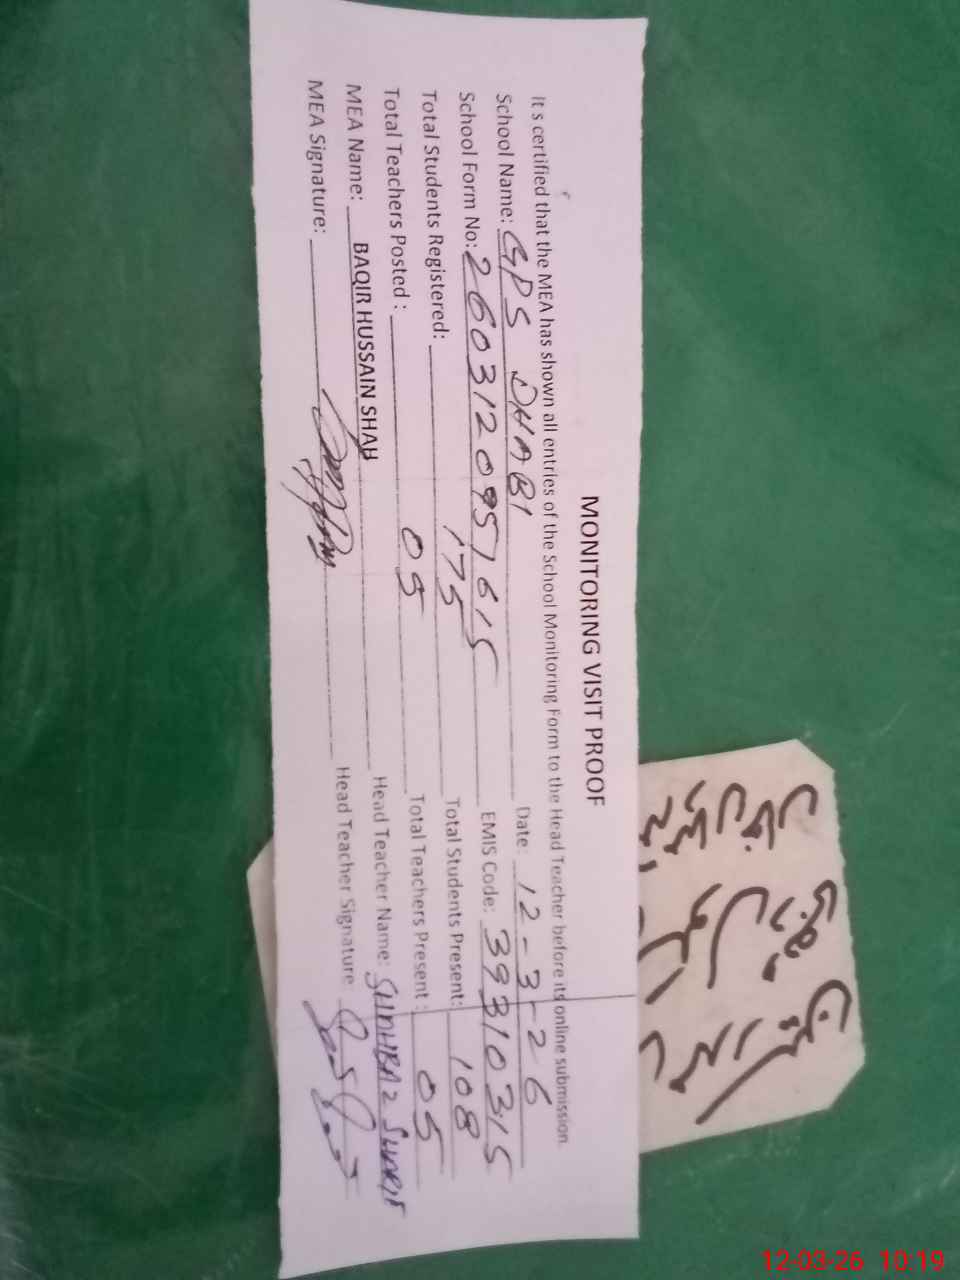 MONITORING VISIT PROOF
It s certified that the MEA has shown all entries of the School Monitoring Form to the Head Teacher before its online submission.
School Name: GPS DHABI Date: 12-3-26
School Form No: 2603120957615 EMIS Code: 39310315
Total Students Registered: 175 Total Students Present: 108
Total Teachers Posted : 05 Total Teachers Present : 05
MEA Name: BAQIR HUSSAIN SHAH Head Teacher Name: SHAHBAZ SHARIF
MEA Signature: Head Teacher Signature:
12-03-26 10:19